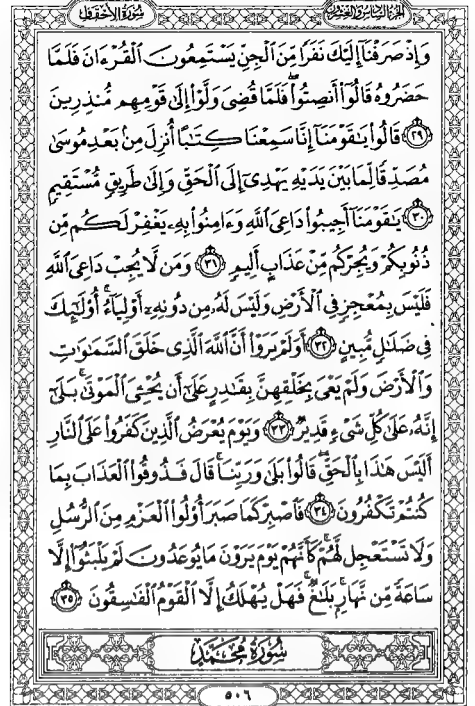 سُورَةُ الأَحْقَافِ
الجزء السادس والعشرون
وَإِذْ صَرَفْنَآ إِلَيْكَ نَفَرًا مِّنَ ٱلْجِنِّ يَسْتَمِعُونَ ٱلْقُرْءَانَ فَلَمَّا
حَضَرُوهُ قَالُوٓا۟ أَنصِتُوا۟ۖ فَلَمَّا قُضِىَ وَلَّوْا۟ إِلَىٰ قَوْمِهِم مُّنذِرِينَ
﴿٢٩﴾ قَالُوا۟ يَٰقَوْمَنَآ إِنَّا سَمِعْنَا كِتَٰبًا أُنزِلَ مِنۢ بَعْدِ مُوسَىٰ
مُصَدِّقًا لِّمَا بَيْنَ يَدَيْهِ يَهْدِىٓ إِلَى ٱلْحَقِّ وَإِلَىٰ طَرِيقٍ مُّسْتَقِيمٍ
﴿٣٠﴾ يَٰقَوْمَنَآ أَجِيبُوا۟ دَاعِىَ ٱللَّهِ وَءَامِنُوا۟ بِهِۦ يَغْفِرْ لَكُم مِّن
ذُنُوبِكُمْ وَيُجِرْكُم مِّنْ عَذَابٍ أَلِيمٍ ﴿٣١﴾ وَمَن لَّا يُجِبْ دَاعِىَ ٱللَّهِ
فَلَيْسَ بِمُعْجِزٍ فِى ٱلْأَرْضِ وَلَيْسَ لَهُۥ مِن دُونِهِۦٓ أَوْلِيَآءُۚ أُو۟لَٰٓئِكَ
فِى ضَلَٰلٍ مُّبِينٍ ﴿٣٢﴾ أَوَلَمْ يَرَوْا۟ أَنَّ ٱللَّهَ ٱلَّذِى خَلَقَ ٱلسَّمَٰوَٰتِ
وَٱلْأَرْضَ وَلَمْ يَعْىَ بِخَلْقِهِنَّ بِقَٰدِرٍ عَلَىٰٓ أَن يُحْۦِىَ ٱلْمَوْتَىٰۚ بَلَىٰٓ
إِنَّهُۥ عَلَىٰ كُلِّ شَىْءٍ قَدِيرٌ ﴿٣٣﴾ وَيَوْمَ يُعْرَضُ ٱلَّذِينَ كَفَرُوا۟ عَلَى ٱلنَّارِ
أَلَيْسَ هَٰذَا بِٱلْحَقِّۖ قَالُوا۟ بَلَىٰ وَرَبِّنَاۚ قَالَ فَذُوقُوا۟ ٱلْعَذَابَ بِمَا
كُنتُمْ تَكْفُرُونَ ﴿٣٤﴾ فَٱصْبِرْ كَمَا صَبَرَ أُو۟لُوا۟ ٱلْعَزْمِ مِنَ ٱلرُّسُلِ
وَلَا تَسْتَعْجِل لَّهُمْۚ كَأَنَّهُمْ يَوْمَ يَرَوْنَ مَا يُوعَدُونَ لَمْ يَلْبَثُوٓا۟ إِلَّا
سَاعَةً مِّن نَّهَارٍۭۚ بَلَٰغٌۚ فَهَلْ يُهْلَكُ إِلَّا ٱلْقَوْمُ ٱلْفَٰسِقُونَ ﴿٣٥﴾
سُورَةُ مُحَمَّدٍ
٥٠٦